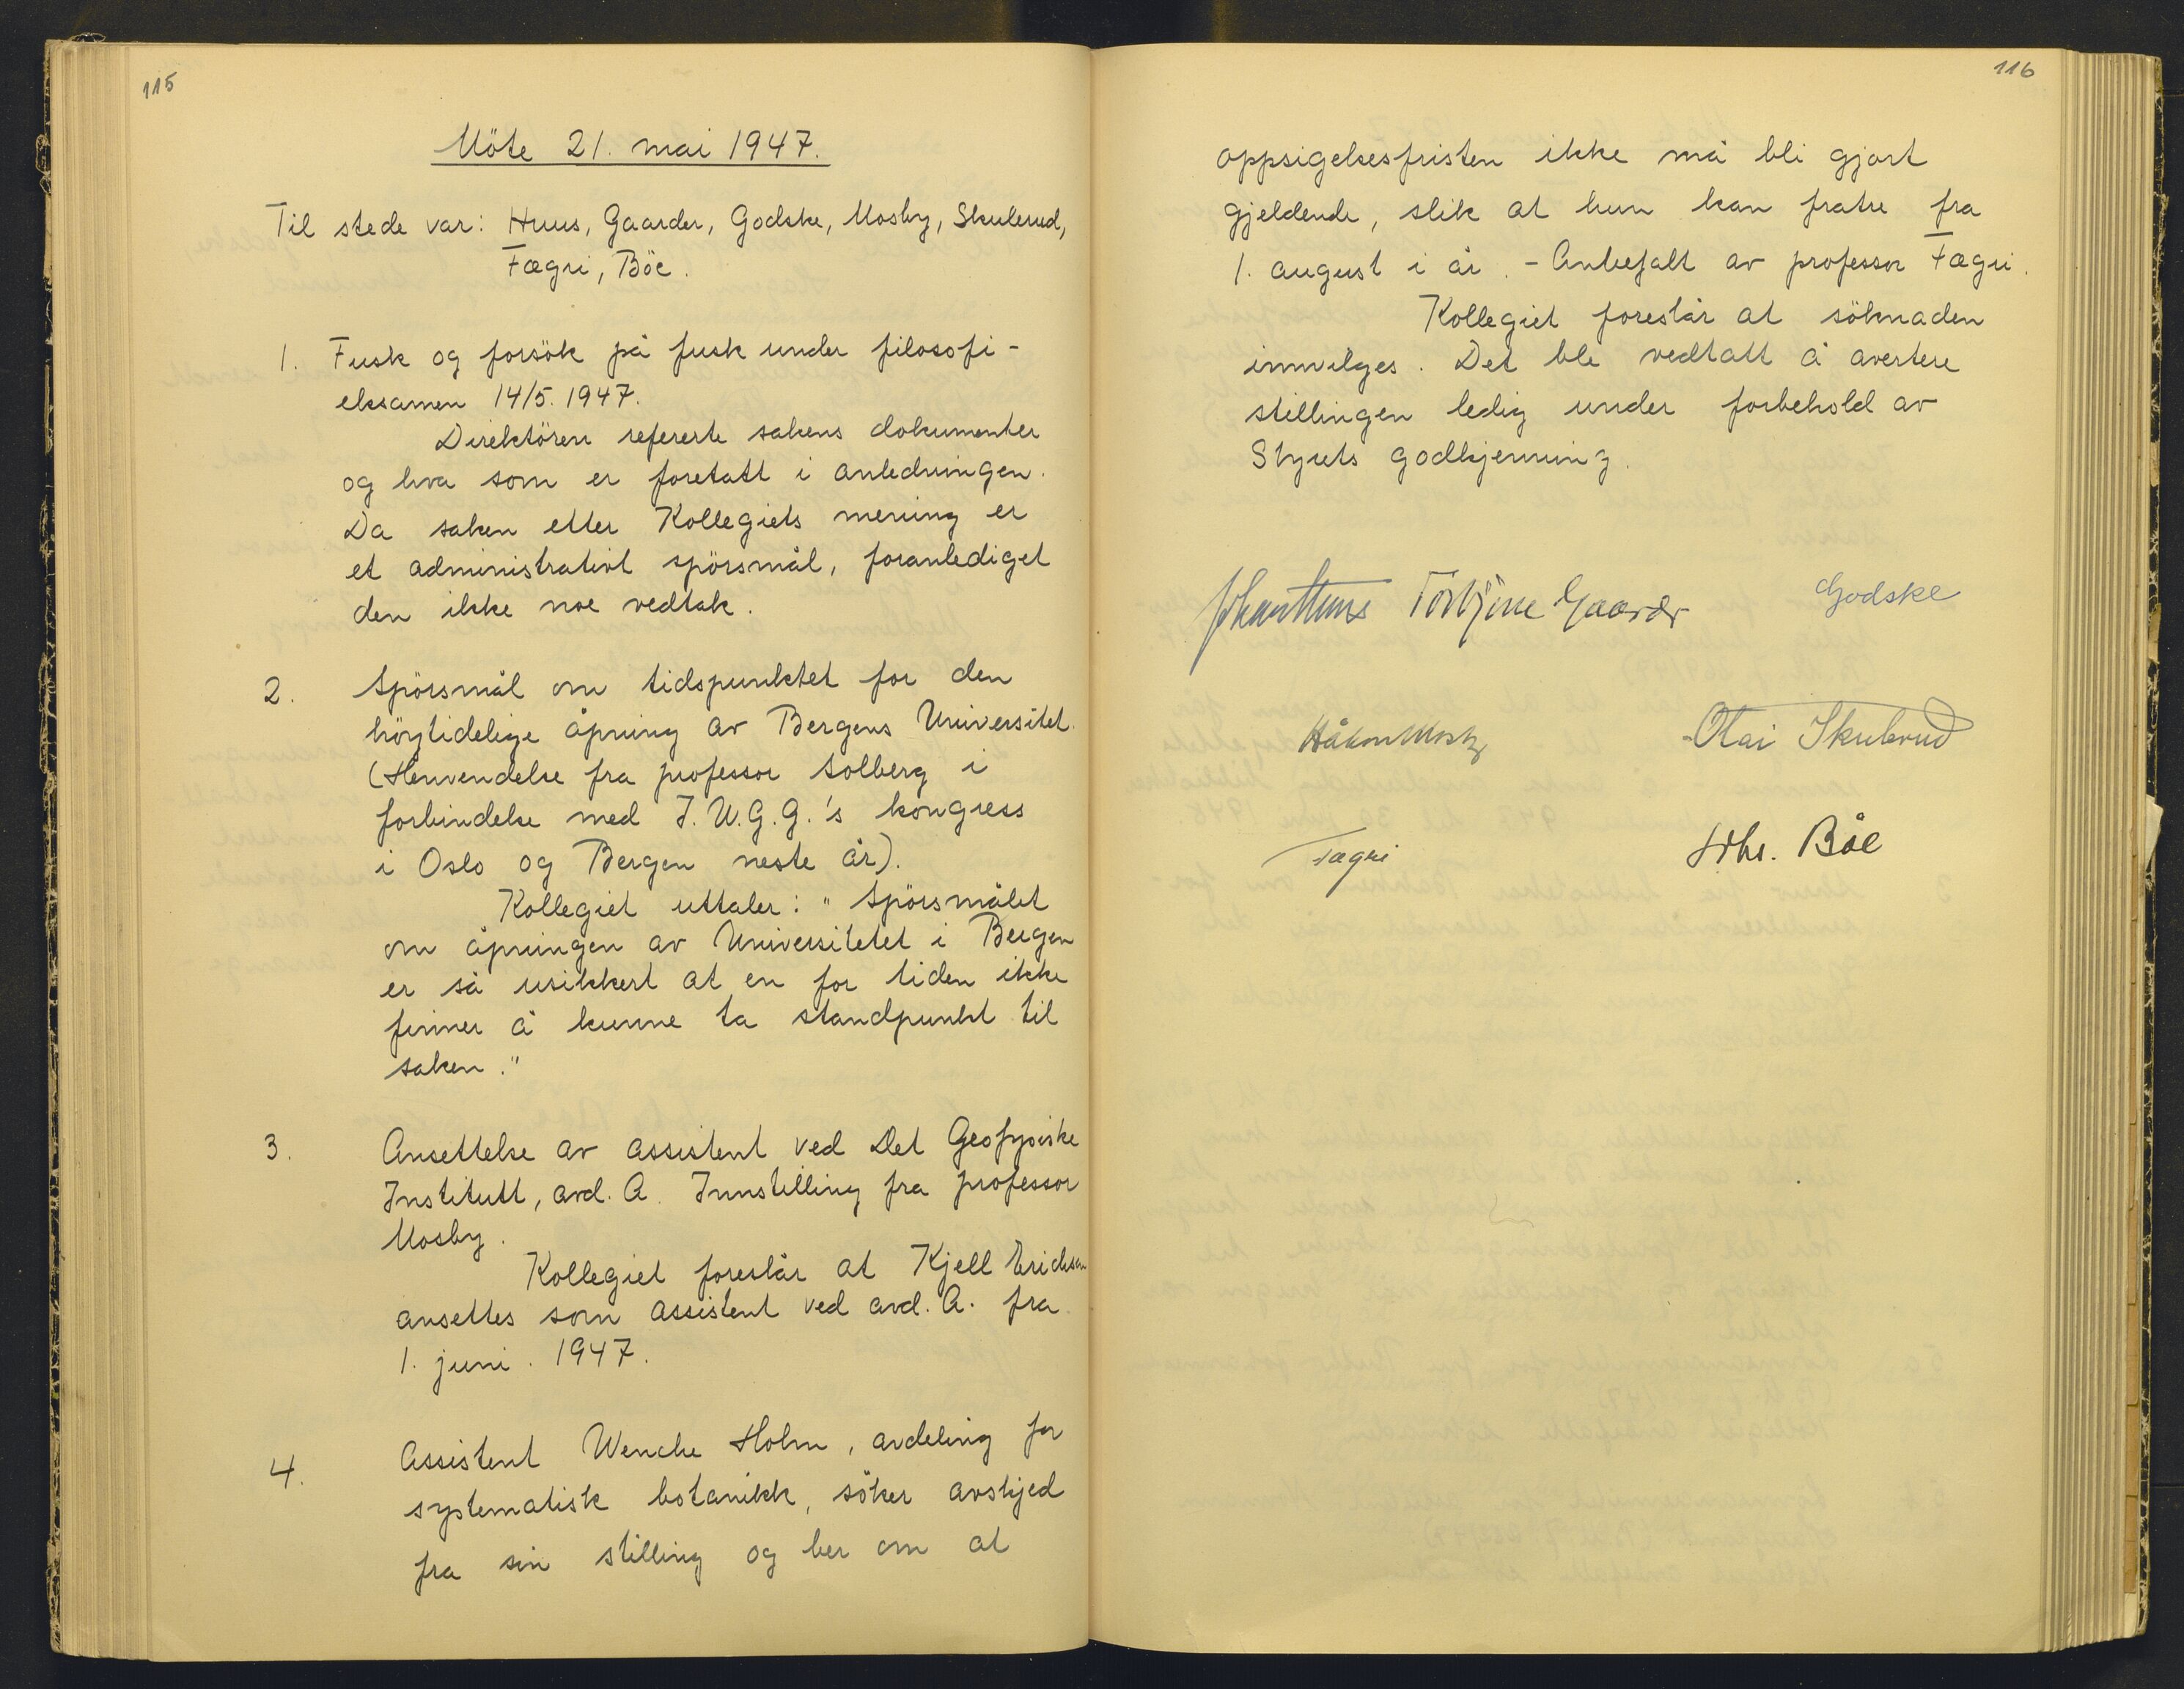 115
Möte 21. mai 1947.
Til stede var: Huus, Gaarder, Godske, Mosby, Skulerud,
Fægri, Böe.
1. Fusk og forsök på fusk under filosofi-
eksamen 14/5. 1947.
Direktören refererte sakens dokumenter
og hva som er foretatt i anledningen.
Da saken etter Kollegiets mening er
et administrativt spörsmål, foranlediget
den ikke noe vedtak.
2. Spörsmål om tidspunktet for den
höytidelige åpning av Bergens Universitet.
(Henvendelse fra professor Solberg i
forbindelse med I.U.G.G.'s kongress
i Oslo og Bergen neste år).
Kollegiet uttaler: "Spörsmålet
om åpningen av Universitetet i Bergen
er så usikkert at en for tiden ikke
finner å kunne ta standpunkt til
saken."
3. Ansettelse av assistent ved Det Geofysiske
Institutt, avd. A. Innstilling fra professor
Mosby.
Kollegiet foreslår at Kjell Erichsen
ansettes som assistent ved avd. A. fra
1. juni. 1947.
4. Assistent Wenche Holm, avdeling for
systematisk botanikk, söker avskjed
fra sin stilling og ber om at
116
oppsigelsesfristen ikke må bli gjort
gjeldende, slik at hun kan fratre fra
1. august i år. - Anbefalt av professor Fægri.
Kollegiet foreslår at söknaden
innvilges. Det ble vedtatt å avertere
stillingen ledig under forbehold av
Styrets godkjenning.
Johan Huus Torbjörn Gaarder Godske
Håkon Mosby Olai Skulerud
Fægri Johs. Böe